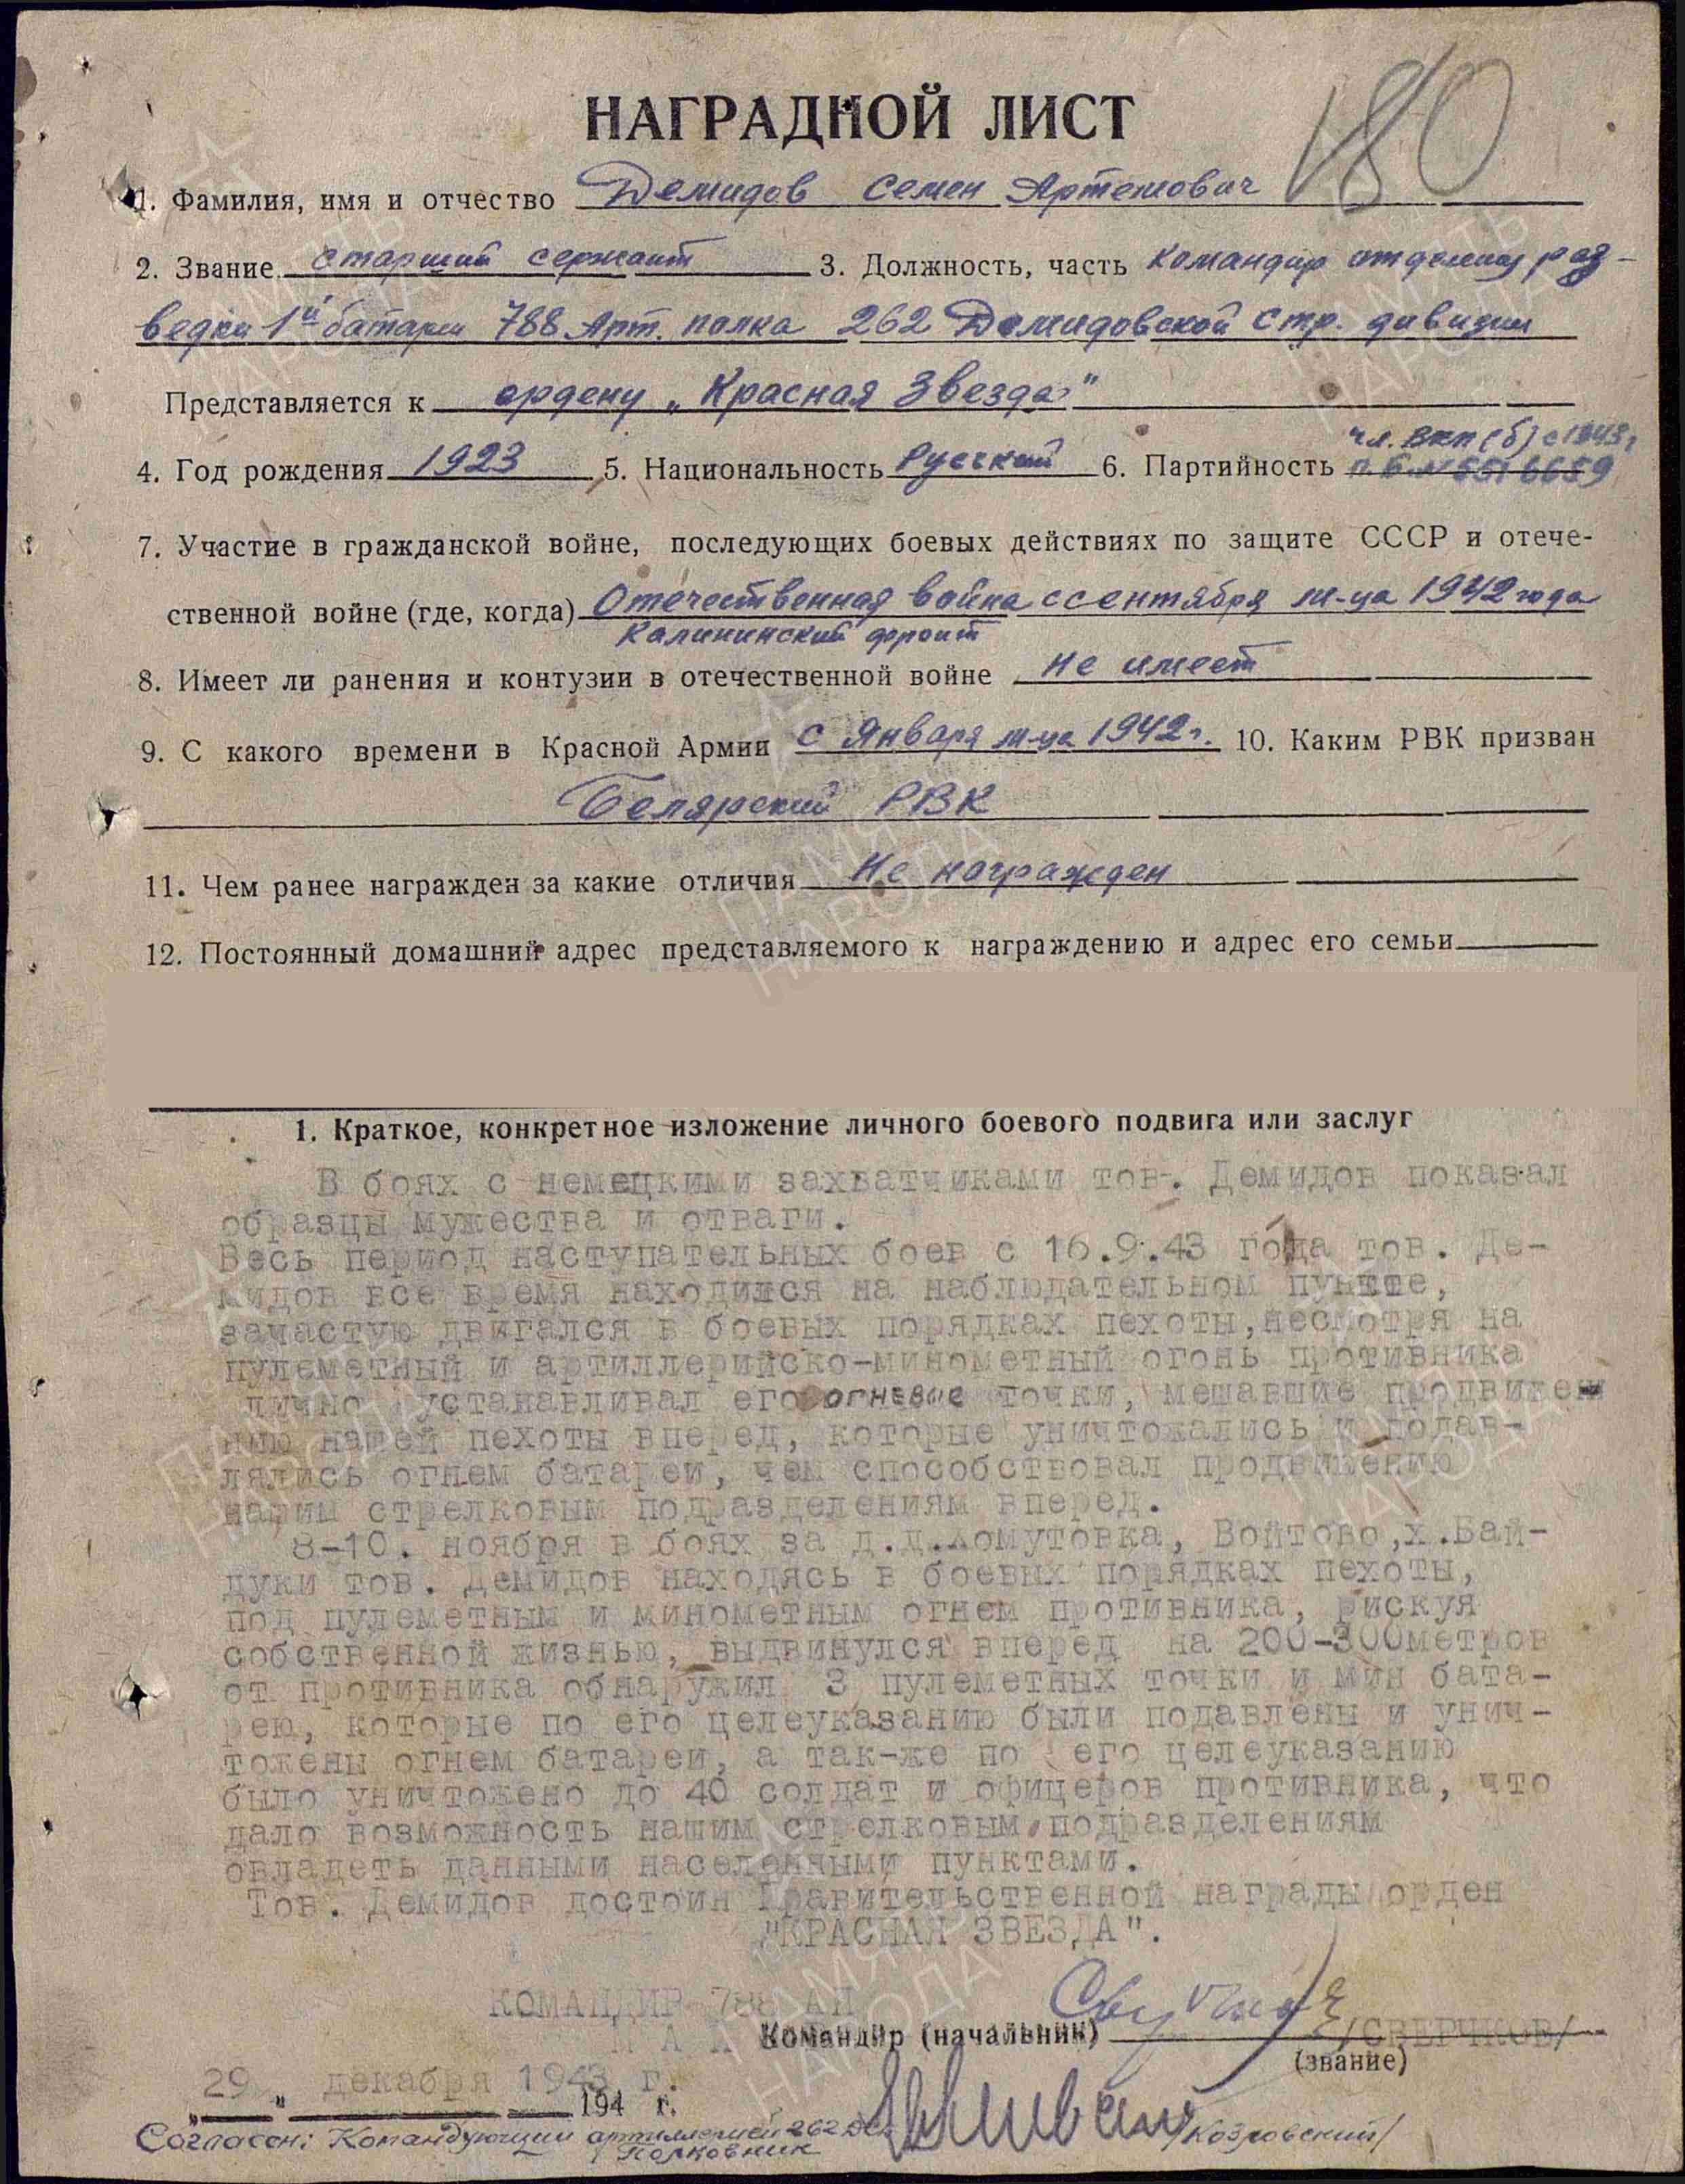 180
НАГРАДНОЙ ЛИСТ
1. Фамилия, имя и отчество Демидов Семен Артемович
2. Звание старший сержант 3. Должность, часть командир отделения раз-
ведки 1й батареи 788 Арт. полка 262 Демидовской стр. дивизии
Представляется к ордену „Красная Звезда"
чл. ВКП(б) с 1943 г
4. Год рождения 1923 5. Национальность Русский 6. Партийность п.б.№
7. Участие в гражданской войне, последующих боевых действиях по защите СССР и отече-
ственной войне (где, когда) Отечественная война с сентября м-ца 1942 года
Калининский фронт
8. Имеет ли ранения и контузии в отечественной войне не имеет
9. С какого времени в Красной Армии с января м-ца 1942 г. 10. Каким РВК призван
Белярский РВК
11. Чем ранее награжден за какие отличия Не награжден
12. Постоянный домашний адрес представляемого к награждению и адрес его семьи
1. Краткое, конкретное изложение личного боевого подвига или заслуг
В боях с немецкими захватчиками тов. Демидов показал
образцы мужества и отваги.
Весь период наступательных боев с 16.9.43 года тов. Де-
мидов все время находился на наблюдательном пункте,
зачастую двигался в боевых порядках пехоты, несмотря на
пулеметный и артиллерийско-минометный огонь противника
лично устанавливал его огневые точки, мешавшие продвижен
нию нашей пехоты вперед, которые уничтожались и подав-
лялись огнем батареи, чем способствовал продвижению
нашим стрелковым подразделениям вперед.
8-10. ноября в боях за д.д.Хомутовка, Войтово,х.Бай-
дуки тов. Демидов находясь в боевых порядках пехоты,
под пулеметным и минометным огнем противника, рискуя
собственной жизнью, выдвинулся вперед на 200-300метров
от противника обнаружил 3 пулеметных точки и мин бата-
рею, которые по его целеуказанию были подавлены и унич-
тожены огнем батареи, а так-же по его целеуказанию
было уничтожено до 40 солдат и офицеров противника, что
дало возможность нашим стрелковым подразделениям
овладеть данными населенными пунктами.
Тов. Демидов достоин Правительственной награды орден
"КРАСНАЯ ЗВЕЗДА".
КОМАНДИР 788 АП
Командир (начальник) /СВЕРЧКОВ/
(звание)
29 декабря 1943 г.
„ " 194 г.
Согласен: Командующий артиллерией 262
Полковник /Козловский/
ПАМЯТЬ
НАРОДА